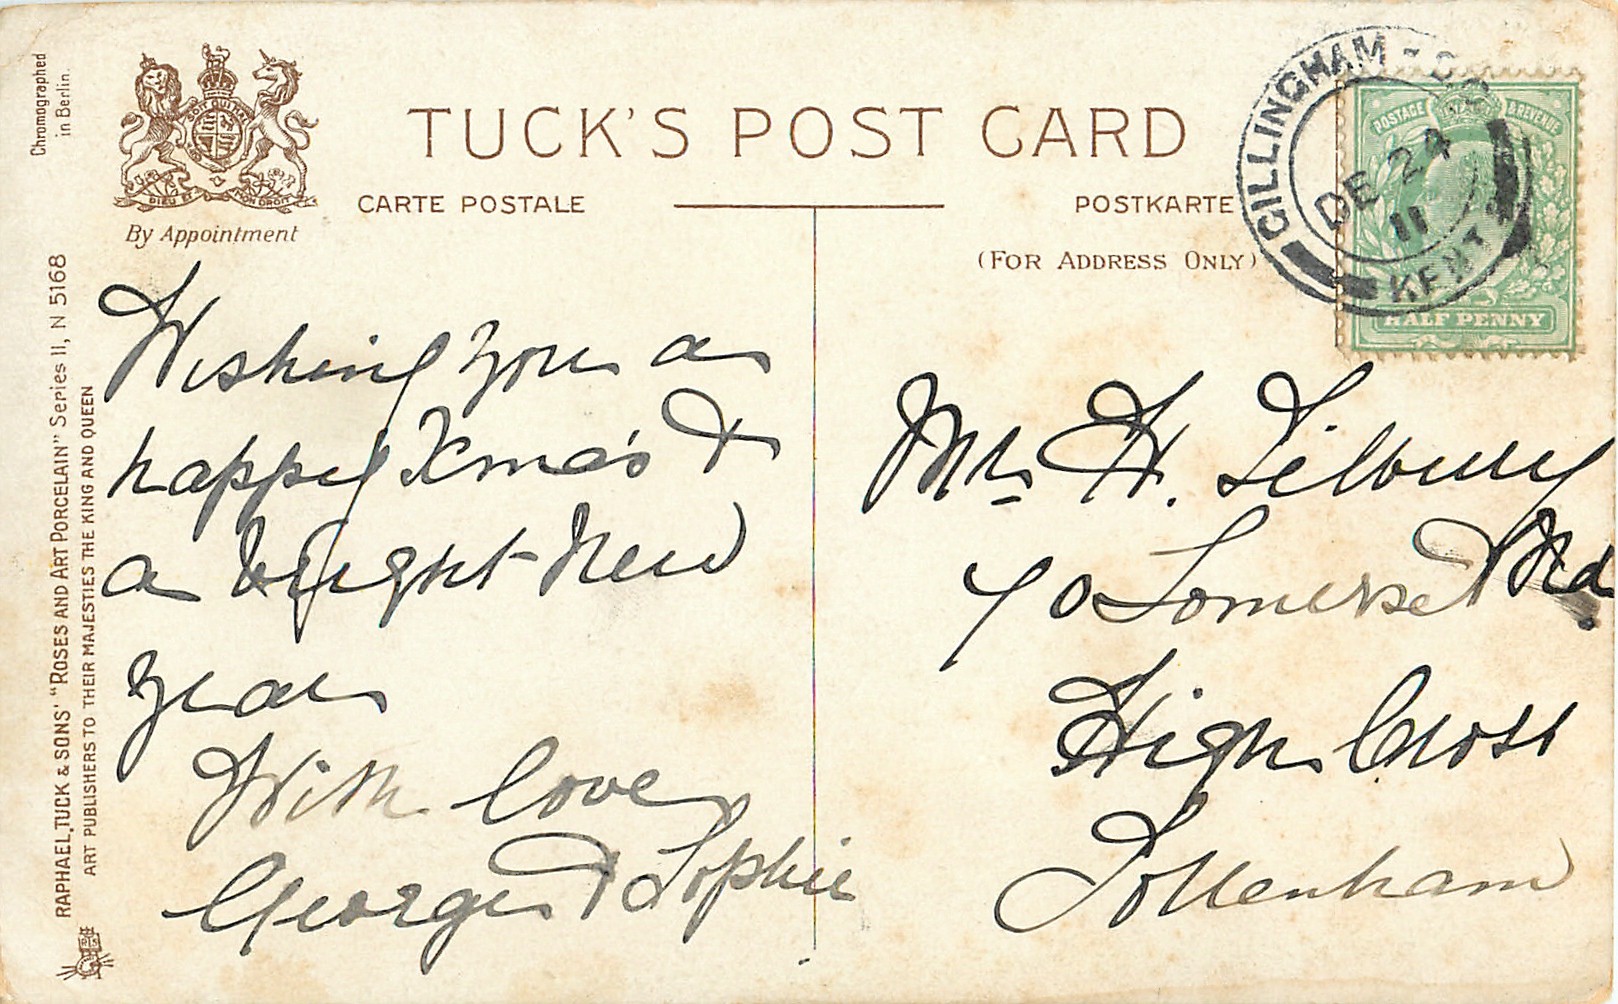 Chromographed
in Berlin.
SOIT QUI MAL
DIEU ET MON DROIT
By Appointment
TUCK'S POST CARD
CARTE POSTALE
POSTKARTE
(FOR ADDRESS ONLY)
GILLINGHAM
DE 24
11
KENT
POSTAGE & REVENUE
HALF PENNY
RAPHAEL TUCK & SONS' "ROSES AND ART PORCELAIN" Series II, N 5168
ART PUBLISHERS TO THEIR MAJESTIES THE KING AND QUEEN
Wishing you a
happy Xmas &
a bright New
year
With love
George & Sophie
Mrs H. Tilbury
70 Somerset Rd
High Cross
Tottenham